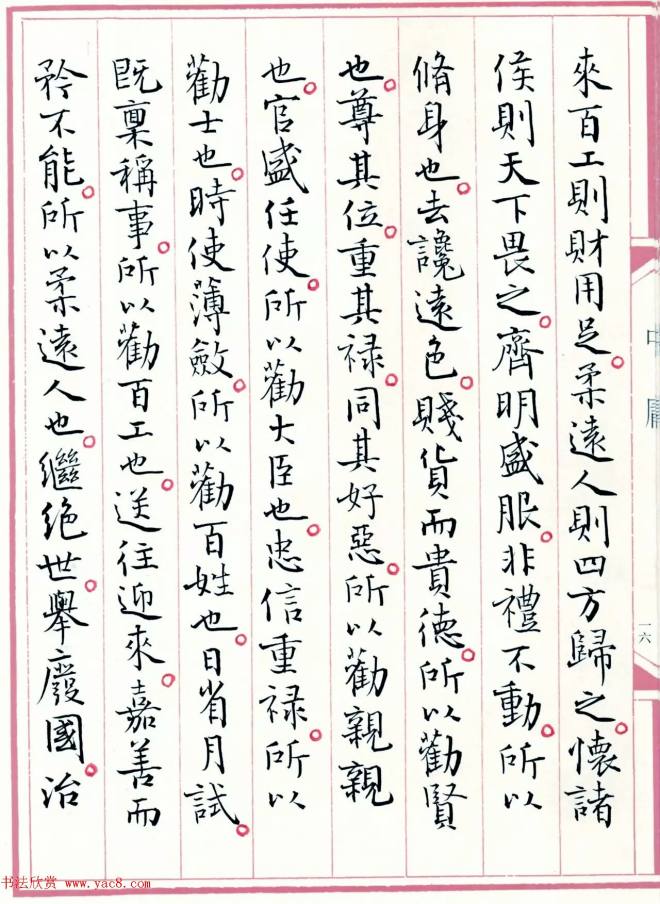 來百工則財用足。柔遠人則四方歸之。懷諸
侯則天下畏之。齊明盛服。非禮不動。所以
脩身也。去讒遠色。賤貨而貴德。所以勸賢
也。尊其位。重其祿。同其好惡。所以勸親親
也。官盛任使。所以勸大臣也。忠信重祿。所以
勸士也。時使薄斂。所以勸百姓也。日省月試。
既稟稱事。所以勸百工也。送往迎來。嘉善而
矜不能。所以柔遠人也。繼絕世。舉廢國。治
中庸
一六
书法欣赏 www.yac8.com